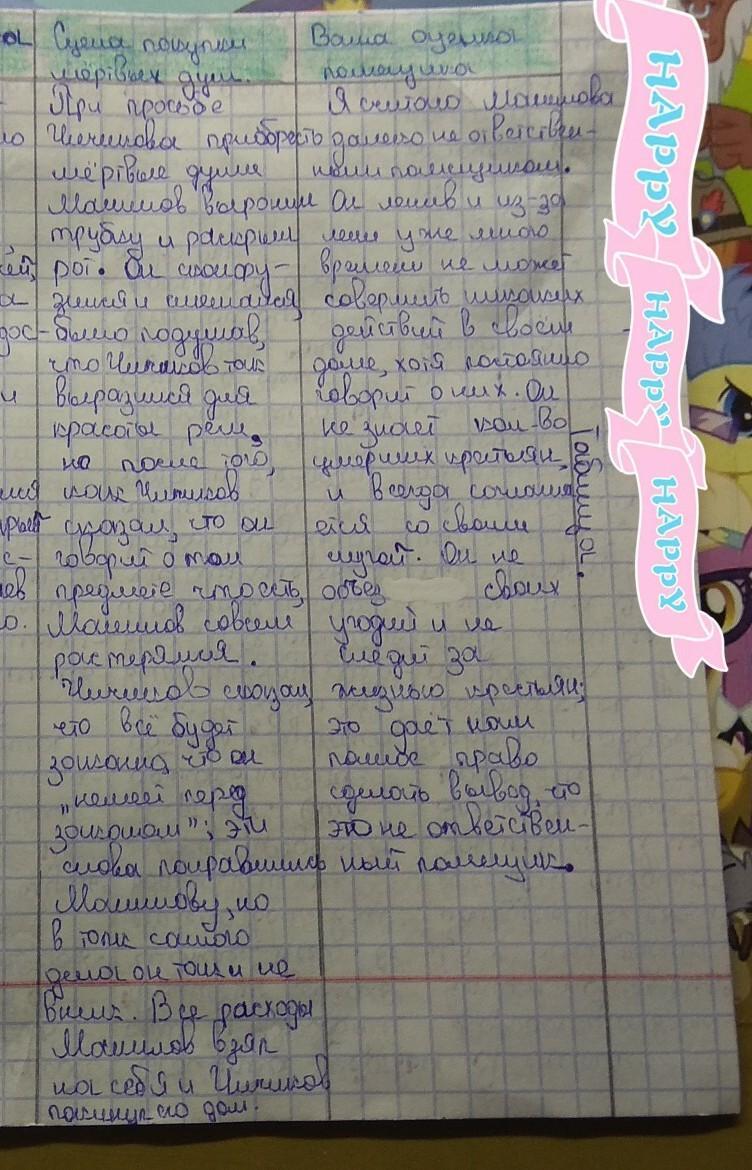 Сцена покупки
мёртвых душ.
При просьбе
Чичикова приобрести
мёртвые души
Манилов выронил
трубку и раскрыл
рот. Он сконфу-
зился и смешался,
было подумав,
что Чичиков так
выразился для
красоты речи,
но после того,
как Чичиков
сказал, что он
говорит о том
предмете что есть,
Манилов совсем
растерялся.
Чичиков сказал,
что всё будет
законно, что он
„немеет перед
законом"; эти
слова понравились
Манилову, но
в толк самого
дела он так и не
вник. Все расходы
Манилов взял
на себя и Чичиков
покинул его дом.
Ваша оценка
помещика
Я считаю Манилова
далеко не ответствен-
ным помещиком.
Он ленив и из-за
лени уже много
времени не может
совершить никаких
действий в своём
доме, хотя постоянно
говорит о них. Он
не знает кол-во
умерших крестьян,
и всегда соглаша
ется со своим
слугой. Он не
объез своих
угодий и не
следит за
жизнью крестьян;
это даёт нам
полное право
сделать вывод, что
это не ответствен-
ный помещик.
Таблица.
HAPPY
HAPPY
HAPPY